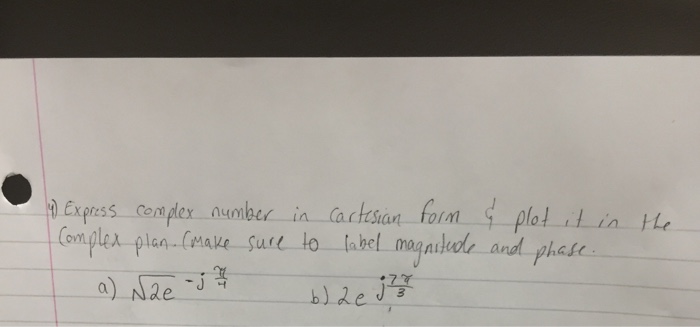 4) Express complex number in cartesian form & plot it in the
Complex plan. (Make sure to label magnitude and phase.
a) √2e^-j π/4 b) 2e^j 7π/3